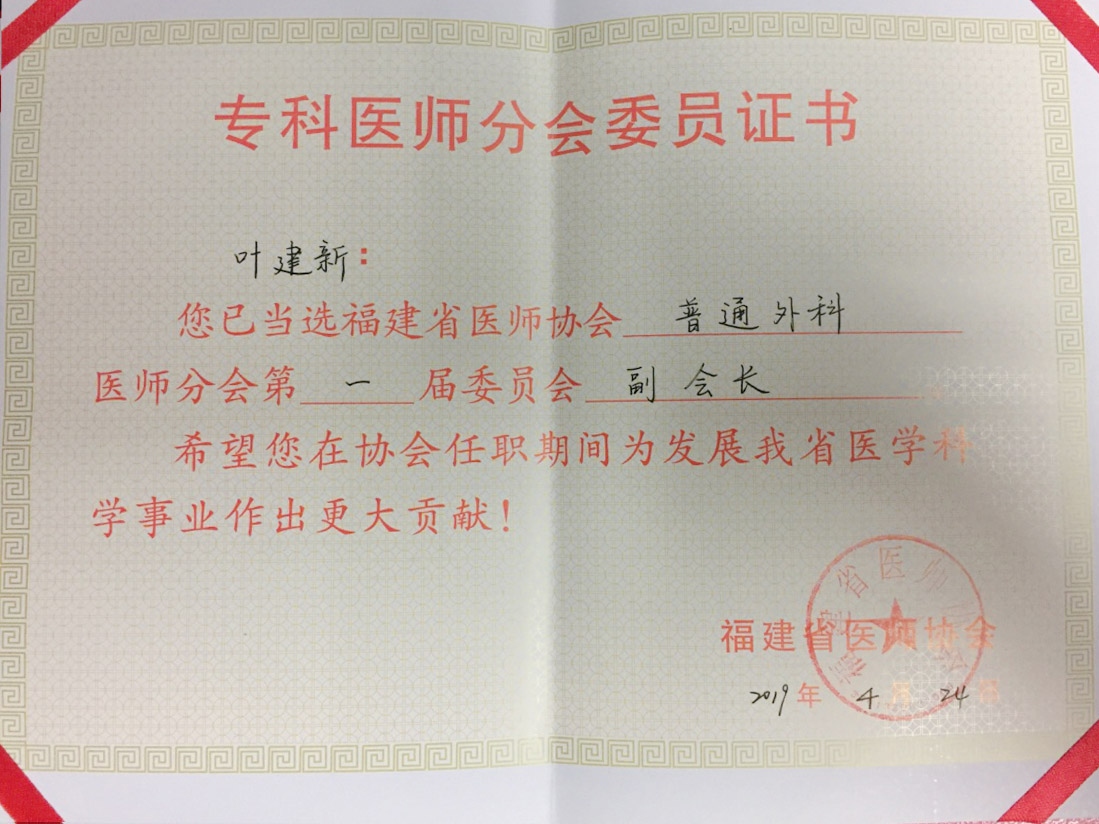 专科医师分会委员证书
叶建新：
您已当选福建省医师协会 普通外科
医师分会第 一 届委员会 副会长。
希望您在协会任职期间为发展我省医学科
学事业作出更大贡献！
福建省医师协会
2019年 4月 24日
福建省医师协会